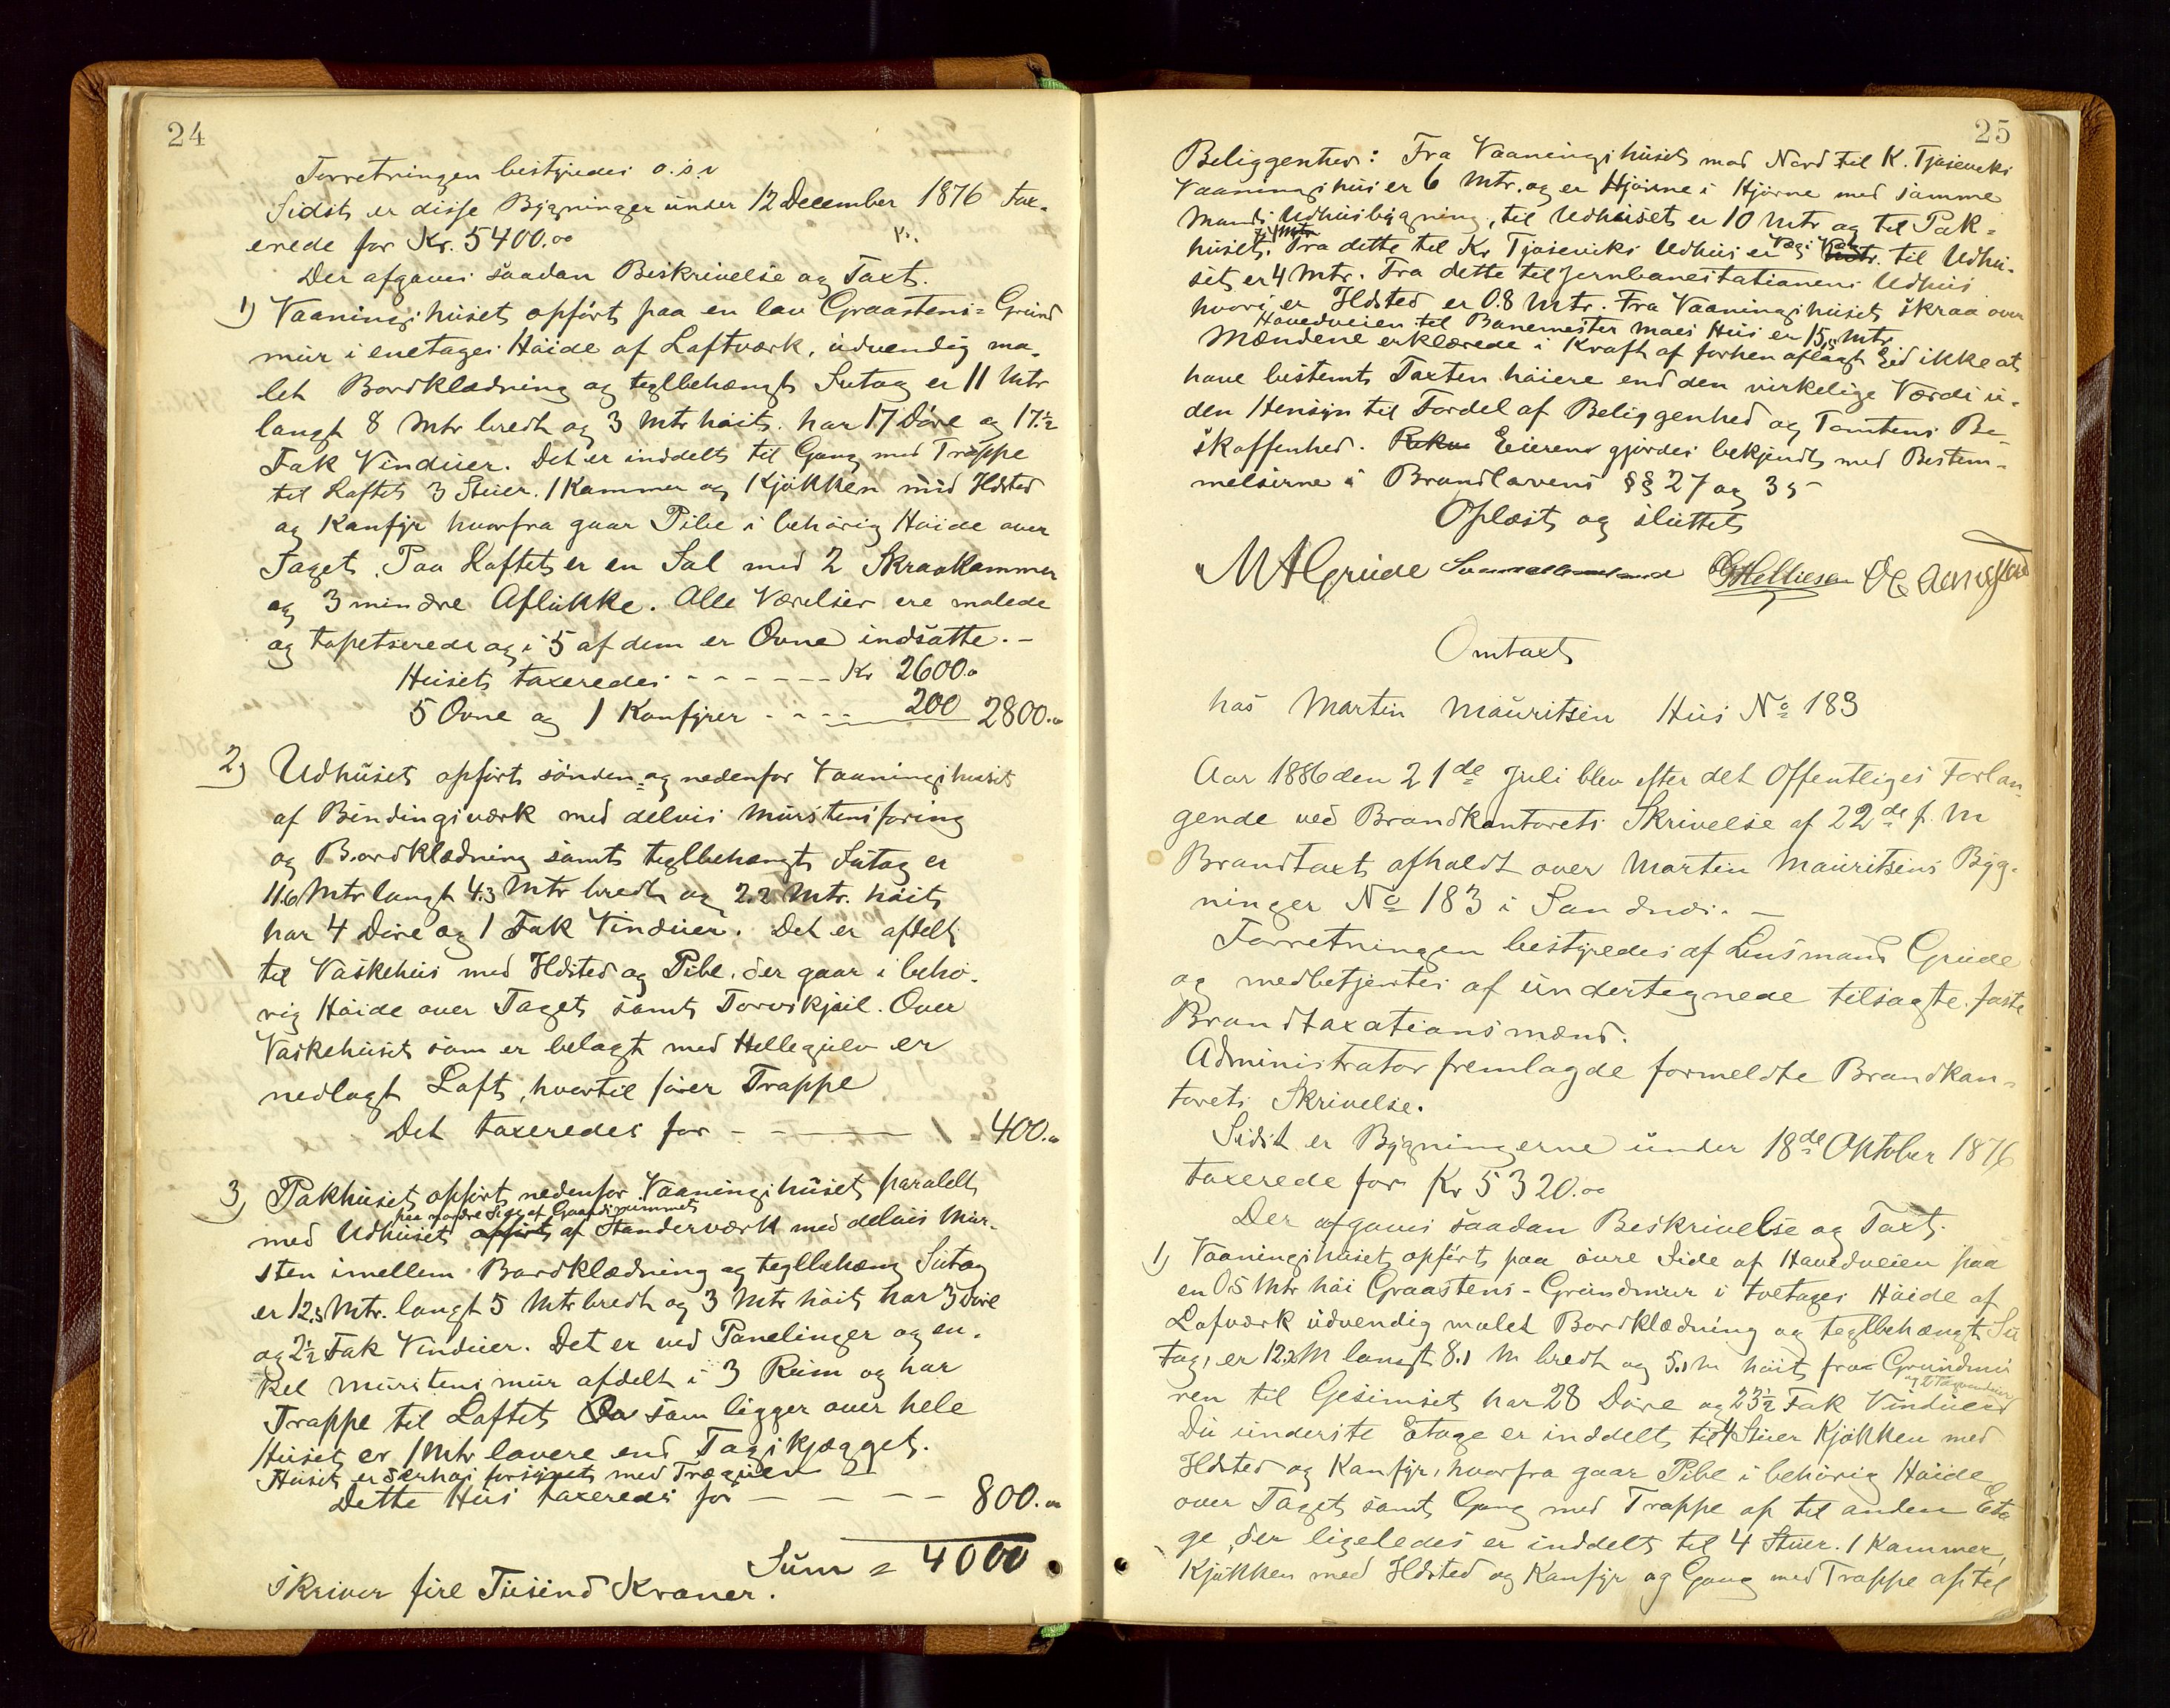 24
Forretningen bestyredes o.s.v
Sidst er disse Bygninger under 12 December 1876 Tax-
erede for Kr. 5400.00
Der afgaves saadan Beskrivelse og Taxt.
1) Vaaningshuset opført paa en lav Graastens-Grund
mur i enetages Høide af Laftværk, udvendig ma-
let Bordklædning og teglbehængt Sutag er 11 Mtr
langt 8 Mtr bredt og 3 Mtr høit. har 17 Døre og 17½
Fak Vinduer. Det er inddelt til Gang med Trappe
til Loftet 3 Stuer. 1 Kammer og Kjøkken med Ildsted
og Komfyr hvorfra gaar Pibe i behørig Høide over
Taget. Paa Loftet er en Sal med 2 Skraakammer
og 3 mindre Aflukke. Alle Værelser ere malede
og tapetserede og i 5 af dem er Ovne indsatte.-
Huset taxeredes - - - - - - Kr 2600.00
5 Ovne og 1 Komfyrer - - - - 200 2800.00
2) Udhuset opført sønden og nedenfor Vaaningshuset
af Bindingsværk med delvis Murstensforing
og Bordklædning samt teglbehængt Sutag er
11.6 Mtr langt 4.3 Mtr bredt og 2.2 Mtr. høit
har 4 Døre og 1 Fak Vinduer. Det er afdelt
til Vaskehus med Ildsted og Pibe, der gaar i behø-
rig Høide over Taget samt Torvskjul. Over
Vaskehuset som er belagt med Hellegulv er
nedlagt Loft, hvortil fører Trappe
Det taxeredes for - - - - 400.00
3) Pakhuset opført nedenfor Vaaningshuset paralelt
paa nordre Side af Gaardsrummet
med Udhuset opført af Standerværk med delvis Mur-
sten imellem Bordklædning og teglbehæng Sutag
er 12.5 Mtr. langt 5 Mtr bredt og 3 Mtr høit har 3 Døre
og 2½ Fak Vinduer. Det er ved Panelinger og en-
kel murstens mur afdelt i 3 Rum og har
Trappe til Loftet som ligger over hele
Huset er 1 Mtr lavere end Tagskjægget.
Huset er særhøi forsynet med Trægulv
Dette Hus taxeredes for - - - - 800.00
Sum = 4000
skriver fire Tusind Kroner.
25
Beliggenhed: Fra Vaaningshuset mod Nord til K. Tjøsevoks
Vaaningshus er 6 Mtr. og er Hjørne i Hjørne med samme
Mands Udhusbygning, til Udhuset er 10 Mtr og til Pak-
huset Mtr Fra dette til Kr Tjøseviks Udhus er Væg i Væg Mtr. til Udhu-
set er 4 Mtr. Fra dette til Jernbanestationens Udhus
hvori er Ildsted er 0.8 Mtr. Fra Vaaningshuset skraa over
Hovedveien til Banemester Moes Hus er 15,5 Mtr.
Mændene erklærede i Kraft af forhen aflagt Eed ikke at
have bestemt Taxten høiere end den virkelige Værdi u-
den Hensyn til Fordel af Beliggenhed og Tomtens Be-
skaffenhed. Eieren gjordes bekjendt med Bestem-
melserne i Brandlovens §§ 27 og 35
Oplæst og sluttet
M A Grude
Omtaxt
hos Martin Mauritsen Hus No 183
Aar 1886 den 21de Juli blev efter det Offentliges Forlan-
gende ved Brandkontorets Skrivelse af 22de f. M
Brandtaxt afholdt over Martin Mauritsens Byg-
ninger No 183 i Sandnes. -
Forretningen bestyredes af Lensmand Grude
og medbetjentes af undertegnede tilsagte faste
Brandtaxationsmænd.
Administrator fremlagde formeldte Brandkon-
torets Skrivelse.
Sidst er Bygningerne under 18de Oktober 1876
taxerede for Kr 5320.00
Der afgaves saadan Beskrivelse og Taxt.
1) Vaaningshuset opført paa øvre Side af Hovedveien paa
en 0.5 Mtr høi Graastens-Grundmur i toetages Høide af
Lafværk udvendig malet Bordklædning og teglbehængt Su
tag, er 12.2 M langt 8.1 M bredt og 5.1 M høit fra Grundmu
ren til Gesimset har 28 Døre og 23½ Fak Vinduer
og 2 Tagvinduer
Du underste Etage er inddelt til 4 Stuer Kjøkken med
Ildsted og Komfyr, hvorfra gaar Pibe i behørig Høide
over Taget samt Gang med Trappe op til anden Eta
ge, der ligeledes er inddelt til 4 Stuer. 1 Kammer,
Kjøkken med Ildsted og Komfyr og Gang med Trappe op til